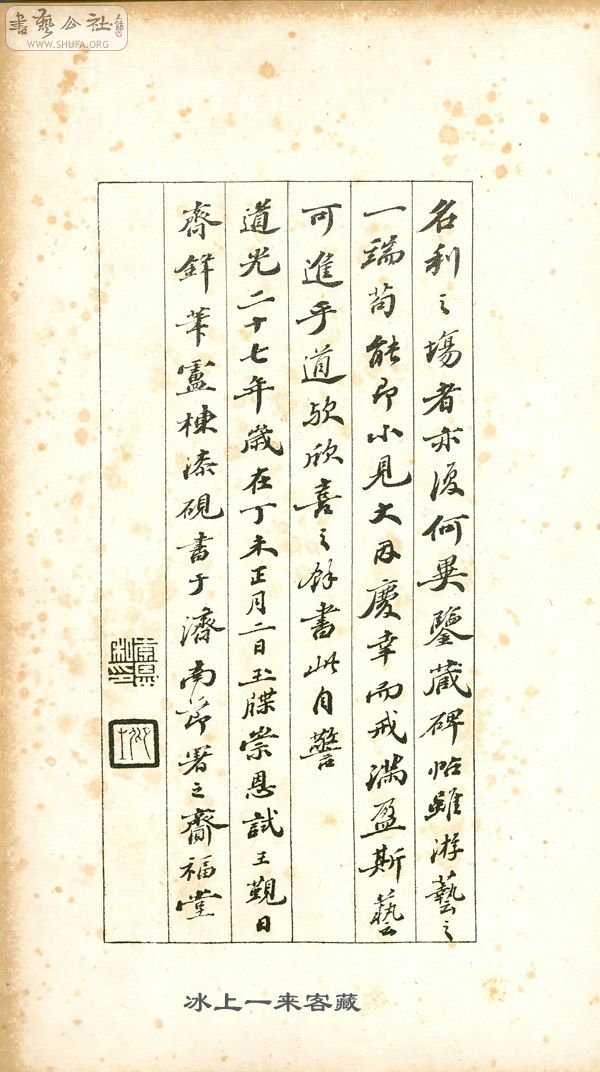 書藝公社
WWW.SHUFA.ORG
名利之塲者亦復何異鑒藏碑帖雖游藝之
一端苟能即小見大因慶幸而戒满盈斯藝
可進乎道欤欣喜之餘書此自警
道光二十七年歲在丁未正月二日玉牒崇恩試王覲日
齋鋅筆盧棟漆硯書于濟南節署之齋福堂
崇恩
冰上一来客藏